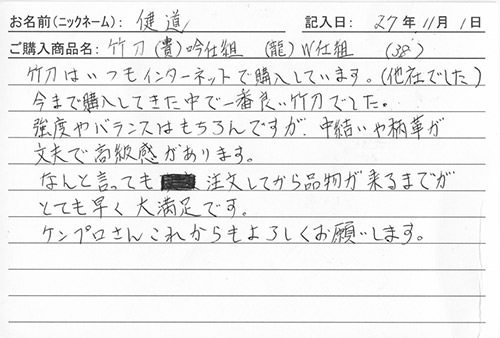 お名前(ニックネーム): 健道 記入日: 27年 11月 1日
ご購入商品名: 竹刀(貴)吟仕組 (龍)W仕組 (38)
竹刀はいつもインターネットで購入しています。(他社でした)
今まで購入してきた中で一番良い竹刀でした。
強度やバランスはもちろんですが、中結いや柄革が
丈夫で高級感があります。
なんと言っても 注文してから品物が来るまでが
とても早く大満足です。
ケンプロさんこれからもよろしくお願いします。